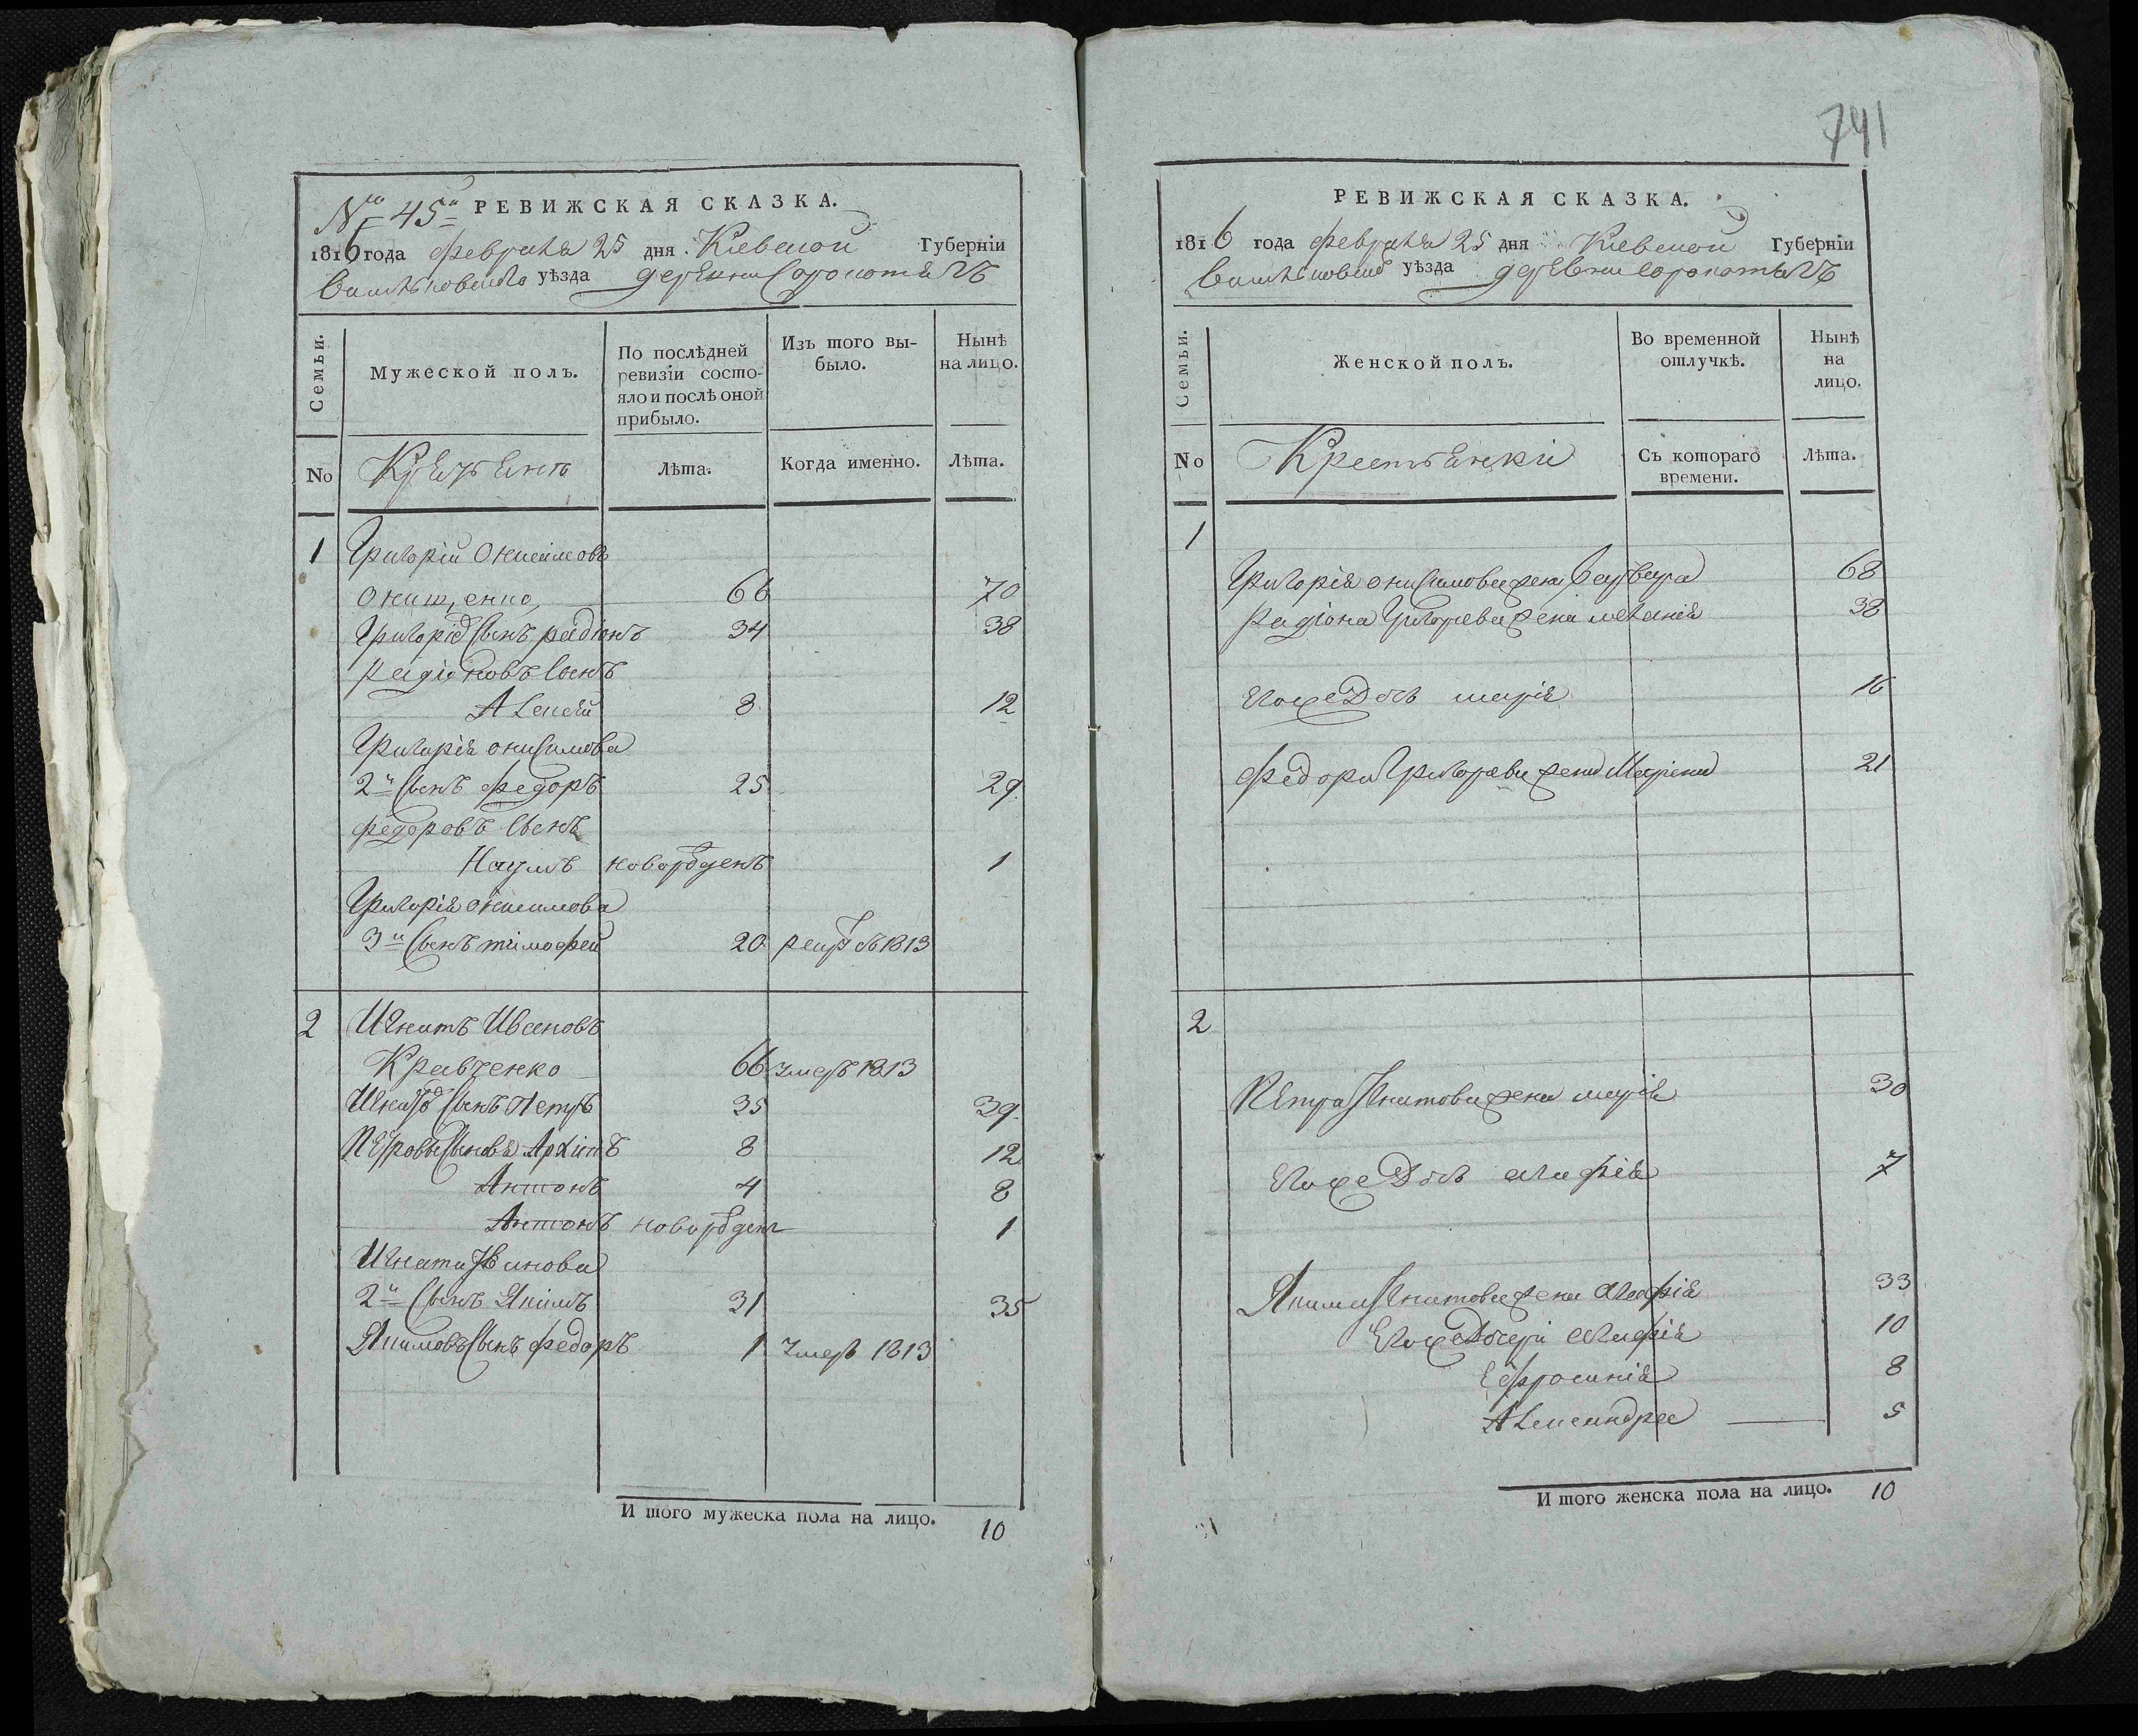 741
No 45й РЕВИЖСКАЯ СКАЗКА.
1816 года февраля 25 дня Киевской Губерніи
Васильковского уѣзда деревни Соропотягъ
Семьи.
Мужеской полъ.
По послѣдней ревизіи состо-
яло и послѣ оной
прибыло.
Изъ того вы-
было.
Нынѣ
на лицо.
No Лѣта. Когда именно. Лѣта.
1 Григорій Онисимовъ
66 70
Григорія Сынъ радіонъ 34 38
Радіоновъ Сынъ
Алексѣй 8 12
Григорія онисимова
2й Сынъ федоръ 25 29
федоровъ Сынъ
Наумъ новорожденъ 1
Григорія онисимова
3й Сынъ тимофей 20 1813
2 Игнатъ Ивановъ
Кравченко 66 умеръ 1813
Игнатовъ Сынъ Петръ 35 39
Петровы Сыновя Архипъ 8 12
Антонъ 4 8
Антонъ новорожден 1
Игната Иванова
2й Сынъ Якимъ 31 35
Якимовъ Сынъ федоръ 1 умеръ 1813
И того мужеска пола на лицо. 10
РЕВИЖСКАЯ СКАЗКА.
1816 года февраля 25 дня Киевской Губерніи
Васильковско уѣзда деревни Соропотягъ
Семьи.
Женской полъ.
Во временной
отлучкѣ.
Нынѣ
на
лицо.
No Крестьянки Съ котораго
времени. Лѣта.
1
Григорія онисимова жена варвара 68
Радіона Григорева жена меланія 38
Егоже Дочь марія 16
федора Григорева жена Марина 21
2
Петра Игнатова жена марія 30
Егоже Дочь агафія 7
Якима Игнатова жена агафія 33
Егоже Дочери агафія 10
Ефросинія 8
Александра 5
И того женска пола на лицо. 10